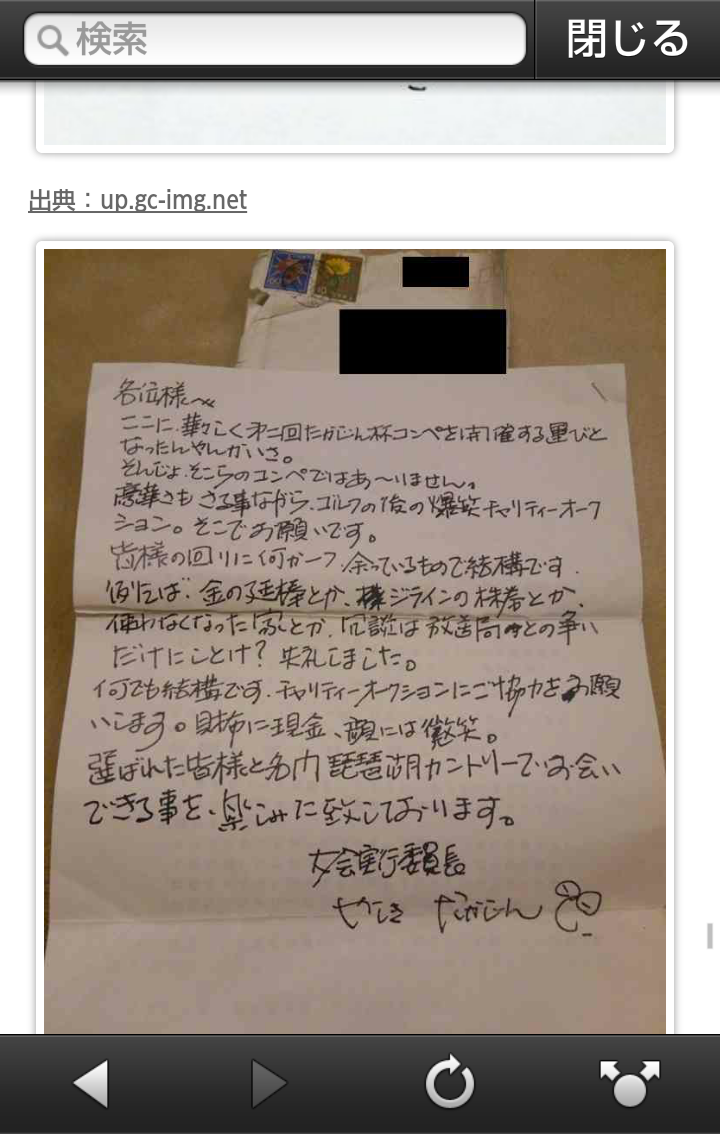 検索
閉じる
出典：up.gc-img.net
60
各位様へ
ここに、華々しく第二回たかじん杯コンペを開催する運びと
なったんやんかいさ。
そんじょそこらのコンペではあ〜りません。
豪華さもさる事ながら、ゴルフの後の爆笑チャリティーオーク
ション。そこでお願いです。
皆様の回りに何か一つ余っているもので結構です.
例えば、金の延棒とか、ジラインの株券とか、
使わなくなった家とか、冗談は放送局との争い
だけにしとけ？失礼しました。
何でも結構です。チャリティーオークションにご協力をお願
いします。財布に現金、顔には微笑。
選ばれた皆様と名門琵琶湖カントリーでお会い
できる事を、楽しみに致しております。
大会実行委員長
やしき たかじん